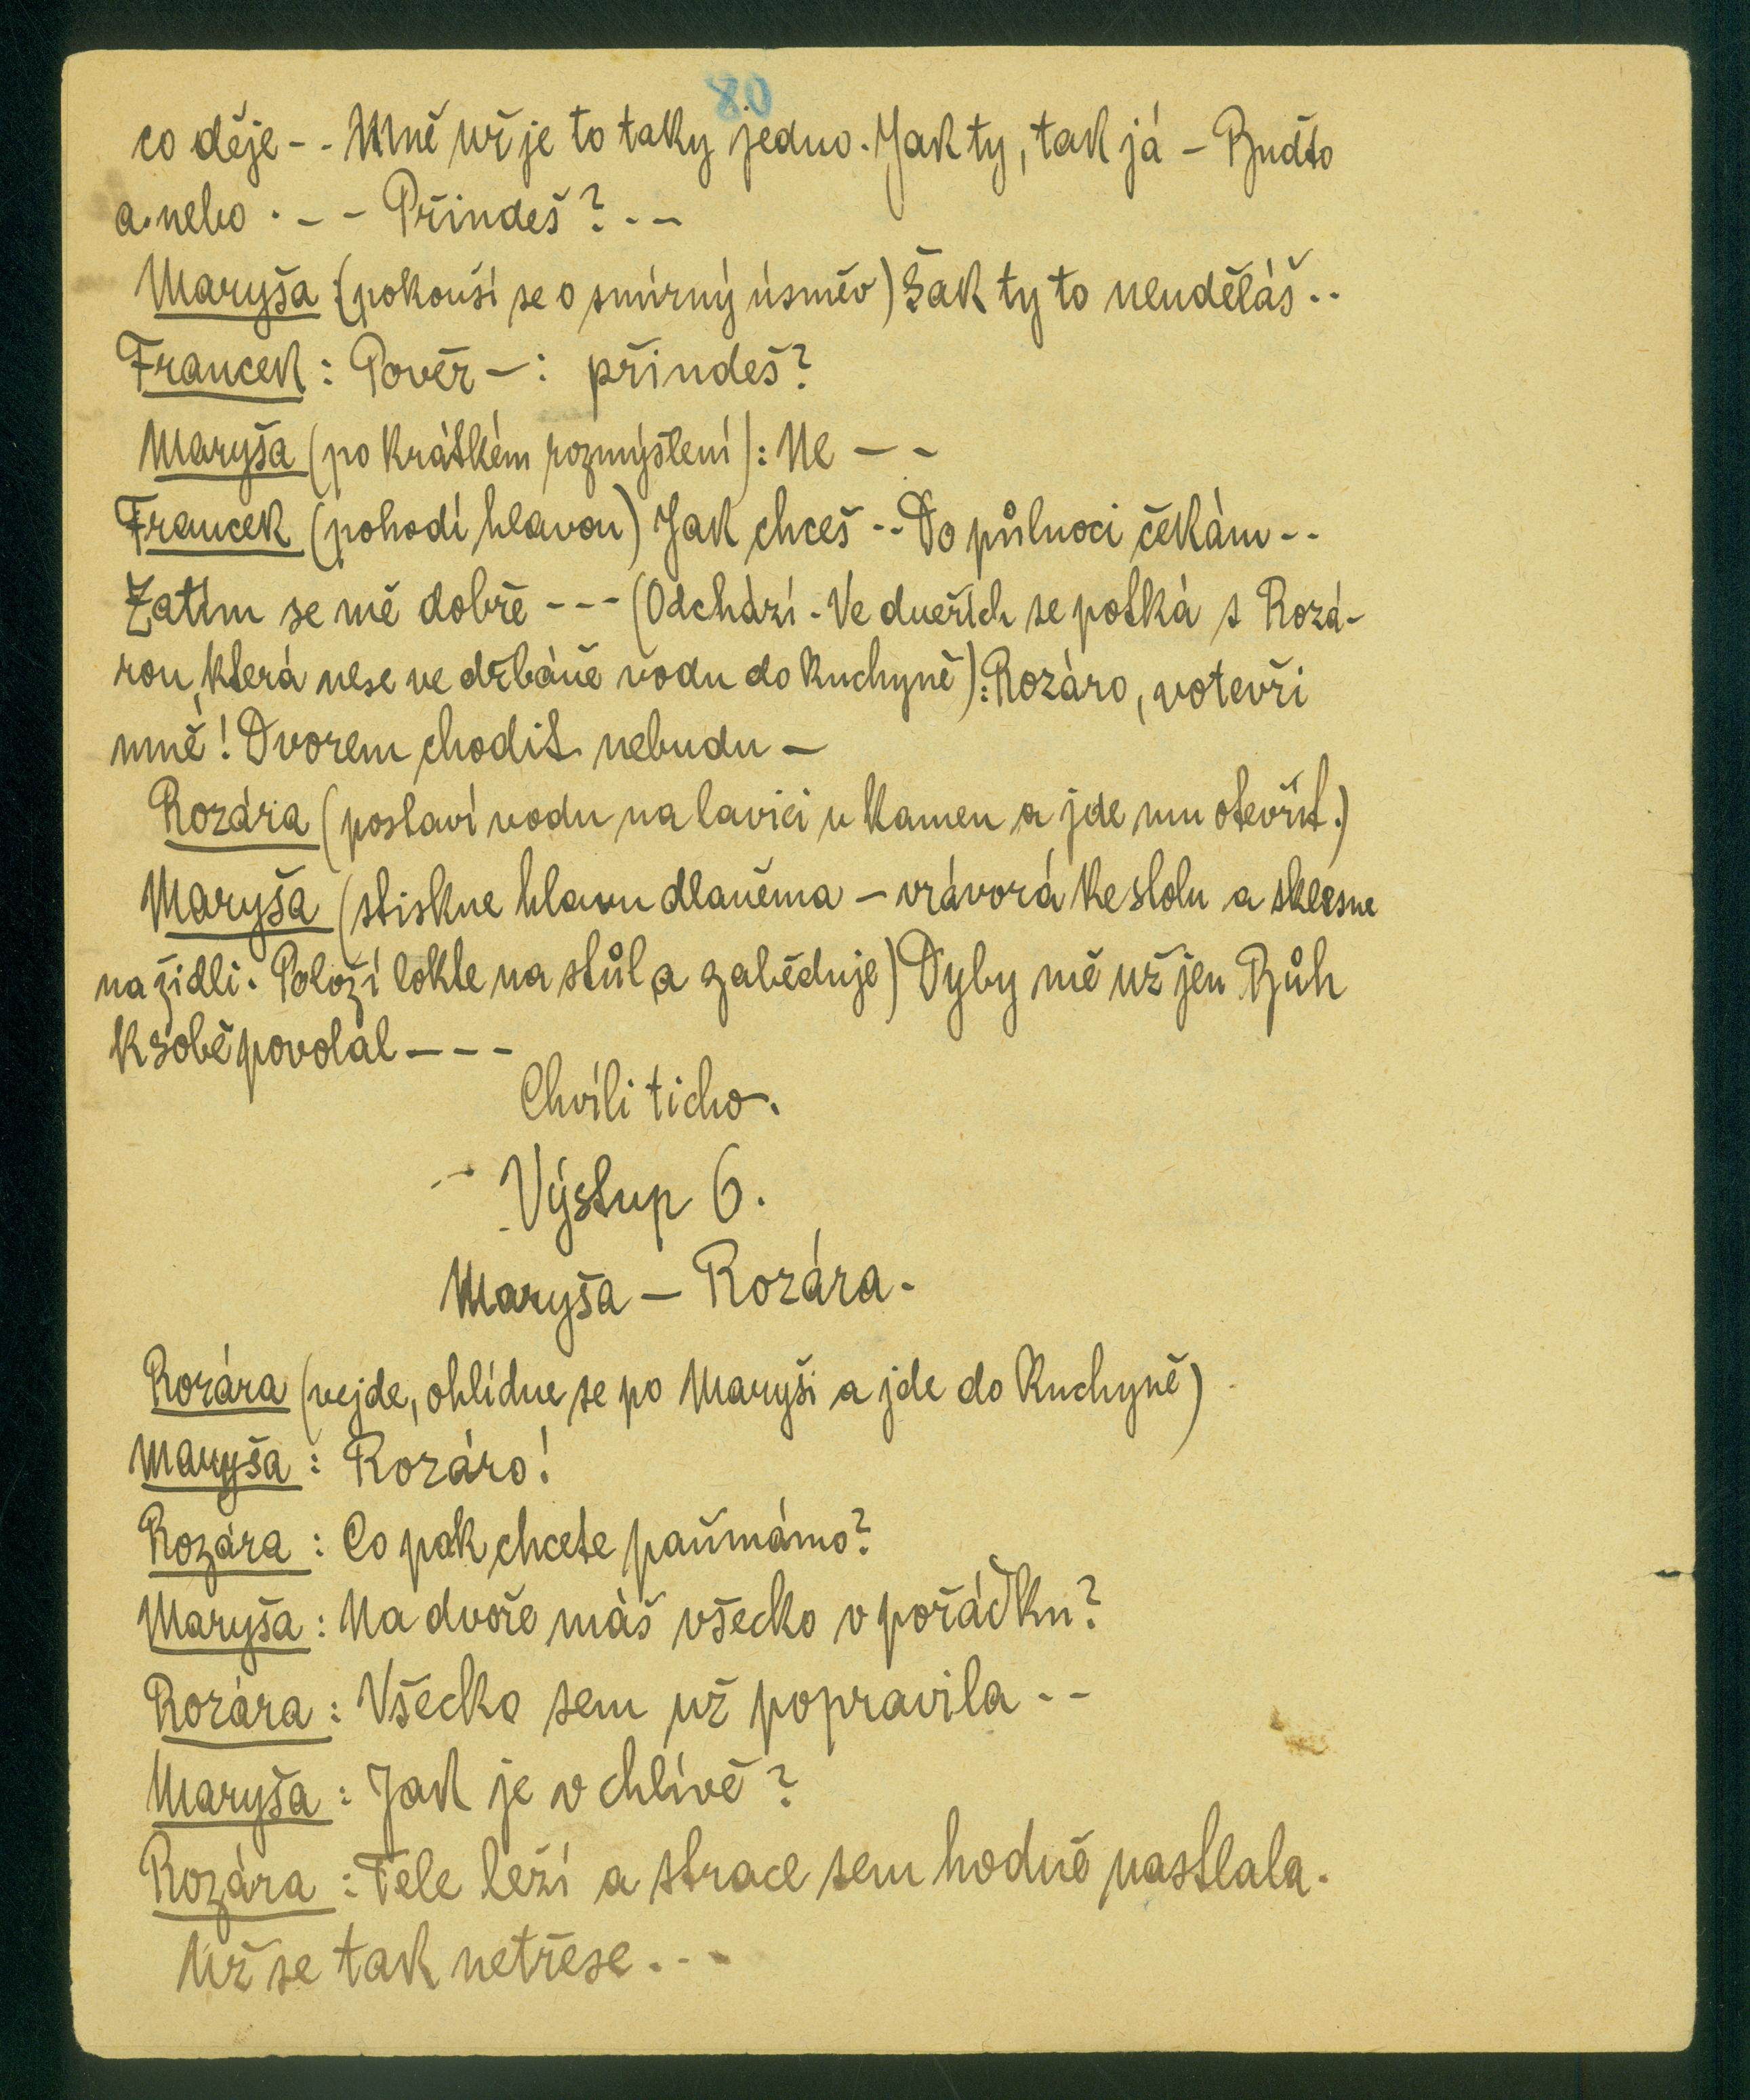 80
co děje - - Mně už je to taky jedno. Jak ty, tak já - Buďto
a nebo . - - Přindeš? - -
Maryša (pokouší se o smírný úsměv) Šak ty to neuděláš . .
Francek : Pověz - : přindeš?
Maryša (po krátkém rozmýšlení): Ne - -
Francek (pohodí hlavou) Jak chceš - - Do půlnoci čekám - -
Zatím se mě dobře - - - (Odchází. Ve dveřích se potká s Rozá-
rou, která nese ve džbáně vodu do kuchyně): Rozáro, votevři
mně! Dvorem chodit nebudu -
Rozára (postaví vodu na lavici u kamen a jde mu otevřít.)
Maryša (stiskne hlavu dlaněma - vrávorá ke stolu a sklesne
na židli. Položí lokte na stůl a zaběduje) Dyby mě už jen Bůh
k sobě povolal - - -
Chvíli ticho.
Výstup 6.
Maryša - Rozára.
Rozára (vejde, ohlídne se po Maryši a jde do kuchyně)
Maryša : Rozáro!
Rozára : Co pak chcete paňmámo?
Maryša : Na dvoře máš všecko v pořádku?
Rozára : Všecko sem už popravila - -
Maryša : Jak je v chlívě?
Rozára : Tele leží a strace sem hodně nastlala.
Už se tak netřese . . .